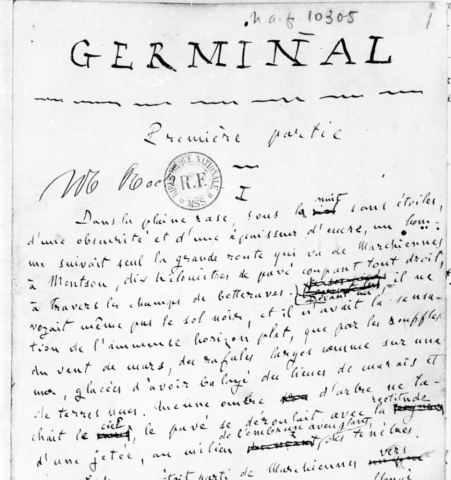 n.a.f. 10305
1
GERMINAL
Première partie
BIBLIOTHÈQUE NATIONALE
R.F.
MSS
I
Dans la plaine rase, sous la nuit sans étoiles,
d'une obscurité et d'une épaisseur d'encre, un hom-
me suivait seul la grande route qui va de Marchiennes
à Montsou, dix kilomètres de pavé coupant tout droit,
à travers les champs de betteraves. Devant lui, il ne
voyait même pas le sol noir, et il n'avait la sensa-
tion de l'immense horizon plat, que par les souffles
du vent de mars, des rafales larges comme sur une
mer, glacées d'avoir balayé des lieues de marais et
de terres nues. Aucune ombre d'arbre ne ta-
chait le ciel, le pavé se déroulait avec la rectitude
d'une jetée, au milieu de l'embrun aveuglant des ténèbres.
était parti de Marchiennes vers